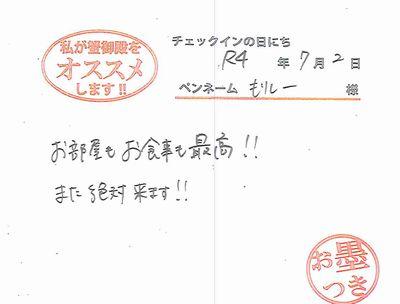 私が蟹御殿を
オススメ
します!!
チェックインの日にち
R4 年 7月 2日
ペンネーム もりー 様
お部屋もお食事も最高!!
また絶対来ます!!
お墨
つき